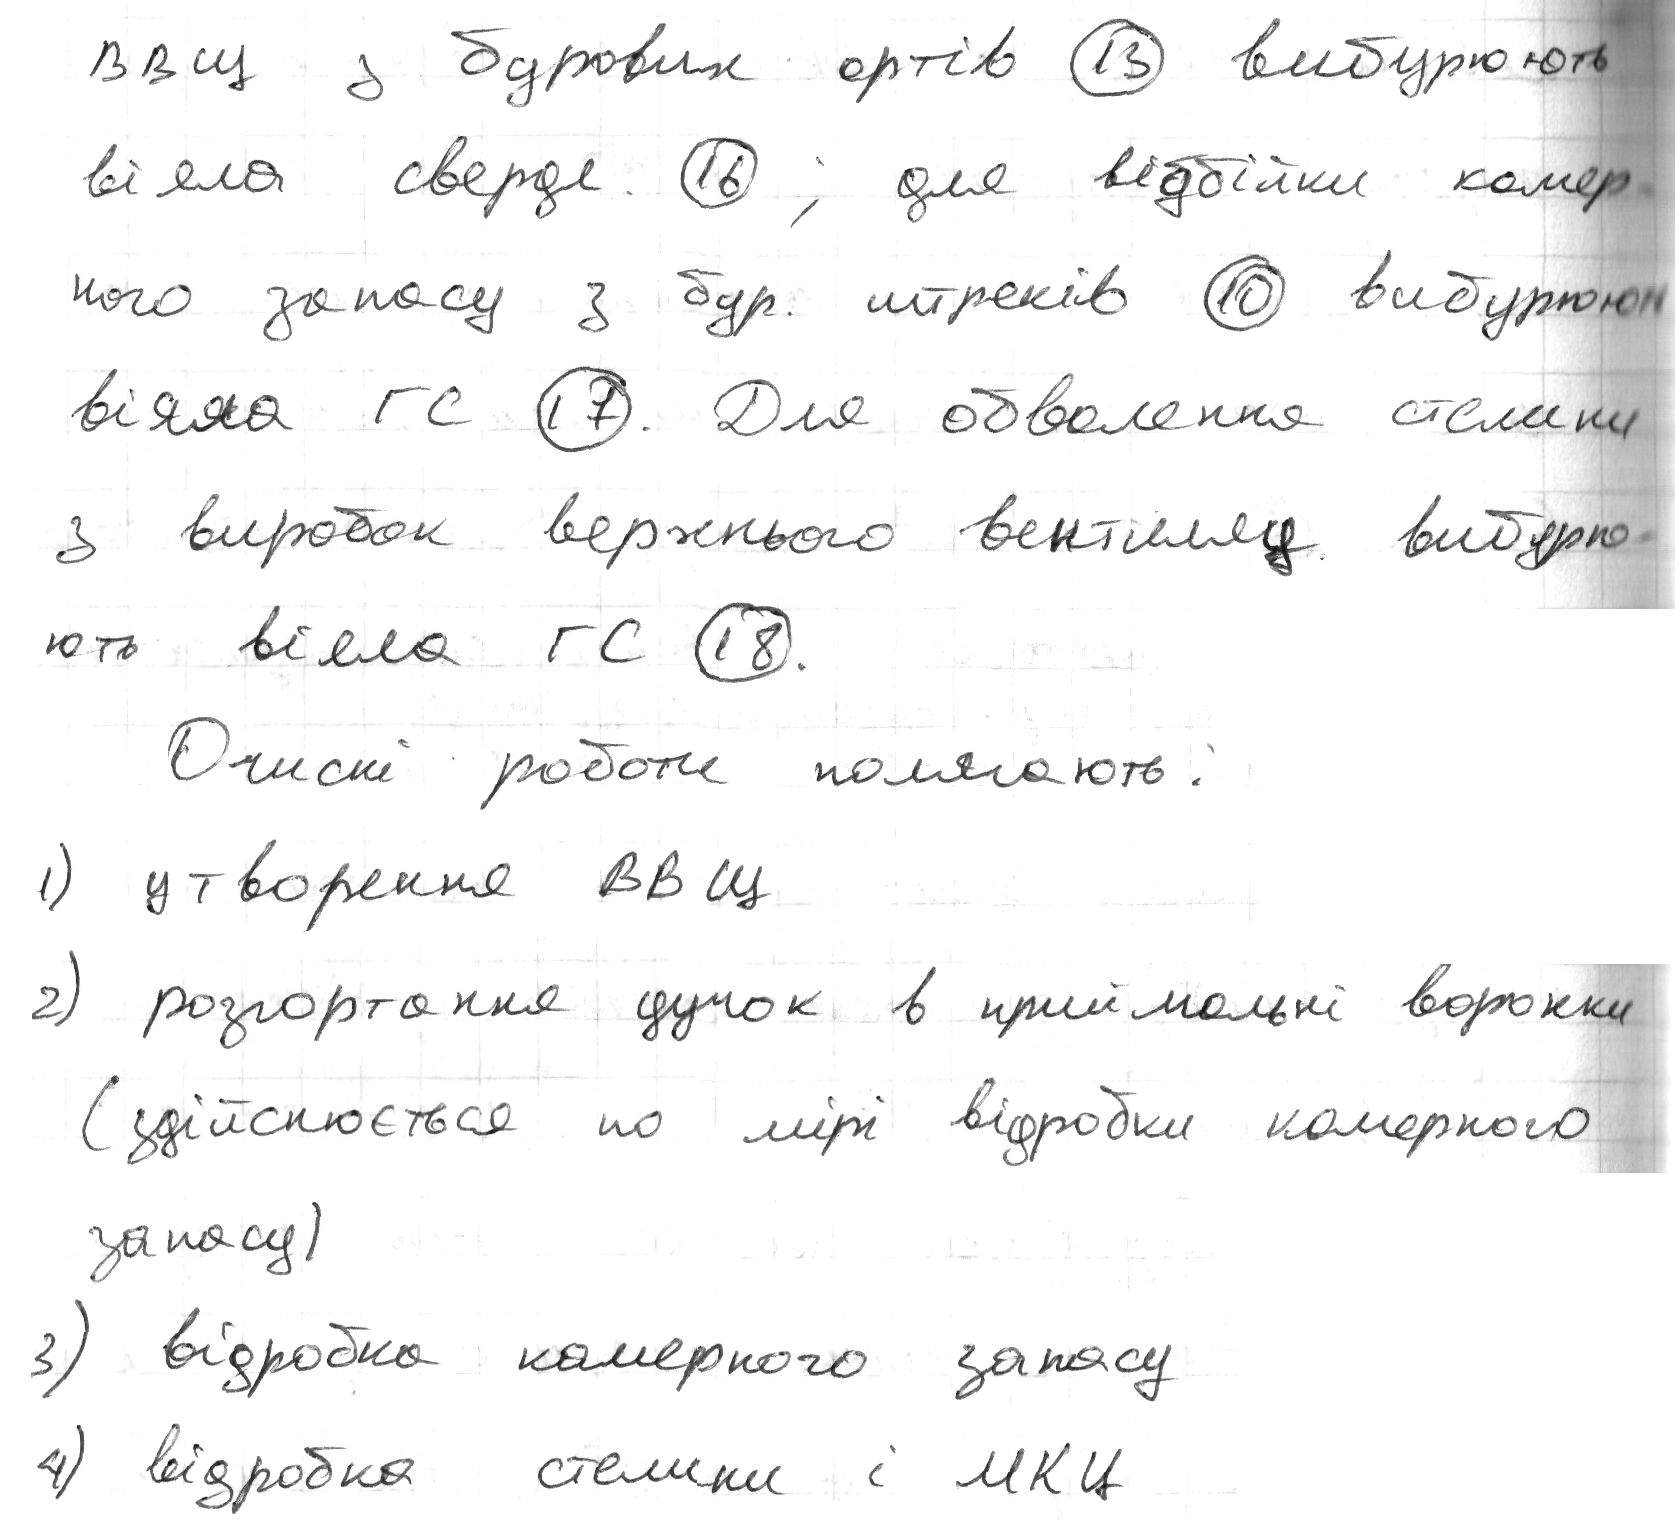 ВВЩ з бурових ортів 13 вибурюють
віяла свердл. 16; для відбійки камер-
ного запасу з бур. штреків 10 вибурюют
віяла ГС 17. Для обвалення стелини
з виробок верхнього вентиляц. вибурю-
ють віяла ГС 18.
Очисні роботи полягають:
1) утворення ВВЩ
2) розгортання дучок в приймальні воронки
(здійснюється по мірі відробки камерного
запасу)
3) відробка камерного запасу
4) відробка стелини і МКЦ